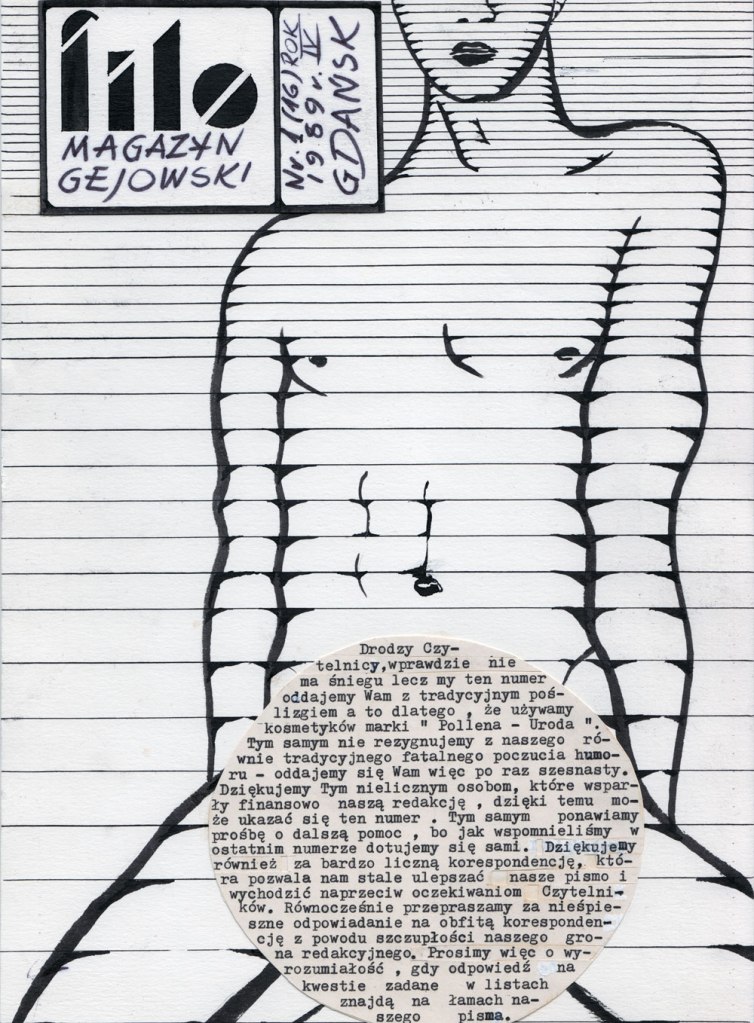 filo
MAGAZYN
GEJOWSKI
Nr. 1 (16) ROK
1989 r. IV
GDAŃSK
Drodzy Czy-
telnicy,wprawdzie nie
ma śniegu lecz my ten numer
oddajemy Wam z tradycyjnym poś-
lizgiem a to dlatego , że używamy
kosmetyków marki " Pollena - Uroda ".
Tym samym nie rezygnujemy z naszego ró-
wnie tradycyjnego fatalnego poczucia humo-
ru - oddajemy się Wam więc po raz szesnasty.
Dziękujemy Tym nielicznym osobom, które wspar-
ły finansowo naszą redakcję , dzięki temu mo-
że ukazać się ten numer . Tym samym ponawiamy
prośbę o dalszą pomoc , bo jak wspomnieliśmy w
ostatnim numerze dotujemy się sami. Dziękujemy
również za bardzo liczną korespondencję, któ-
ra pozwala nam stale ulepszać nasze pismo i
wychodzić naprzeciw oczekiwaniom Czytelni-
ków. Równocześnie przepraszamy za nieśpie-
szne odpowiadanie na obfitą koresponden-
cję z powodu szczupłości naszego gro-
na redakcyjnego. Prosimy więc o wy-
rozumiałość , gdy odpowiedź na
kwestie zadane w listach
znajdą na łamach na-
szego pisma.